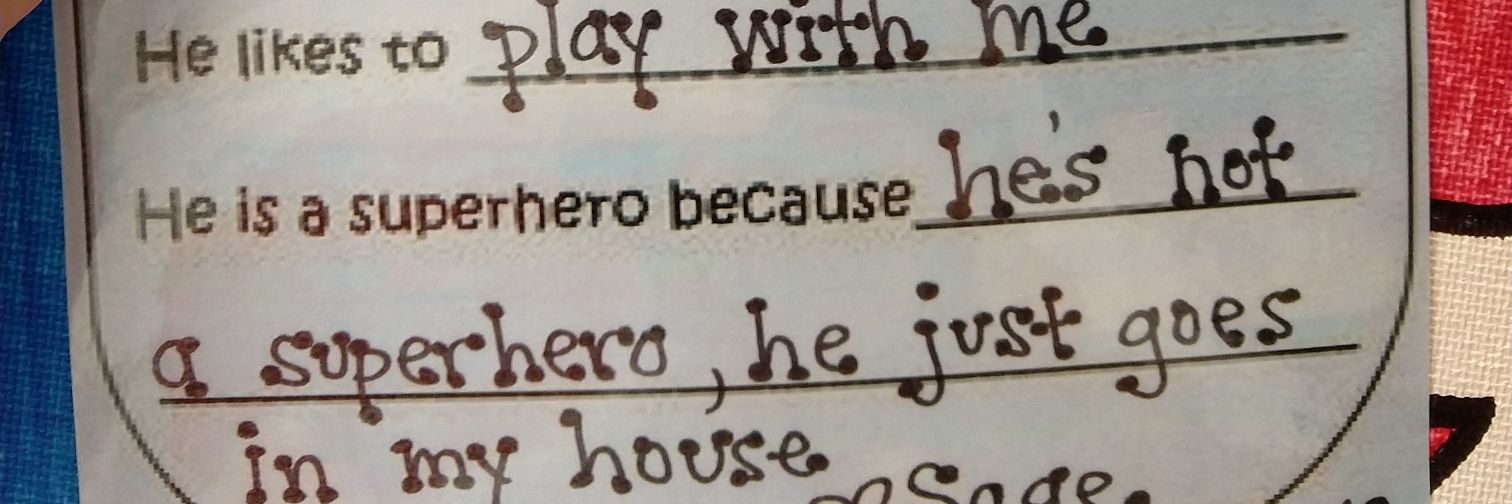 He likes to play with me
He is a superhero because he's not
a superhero, he just goes
in my house